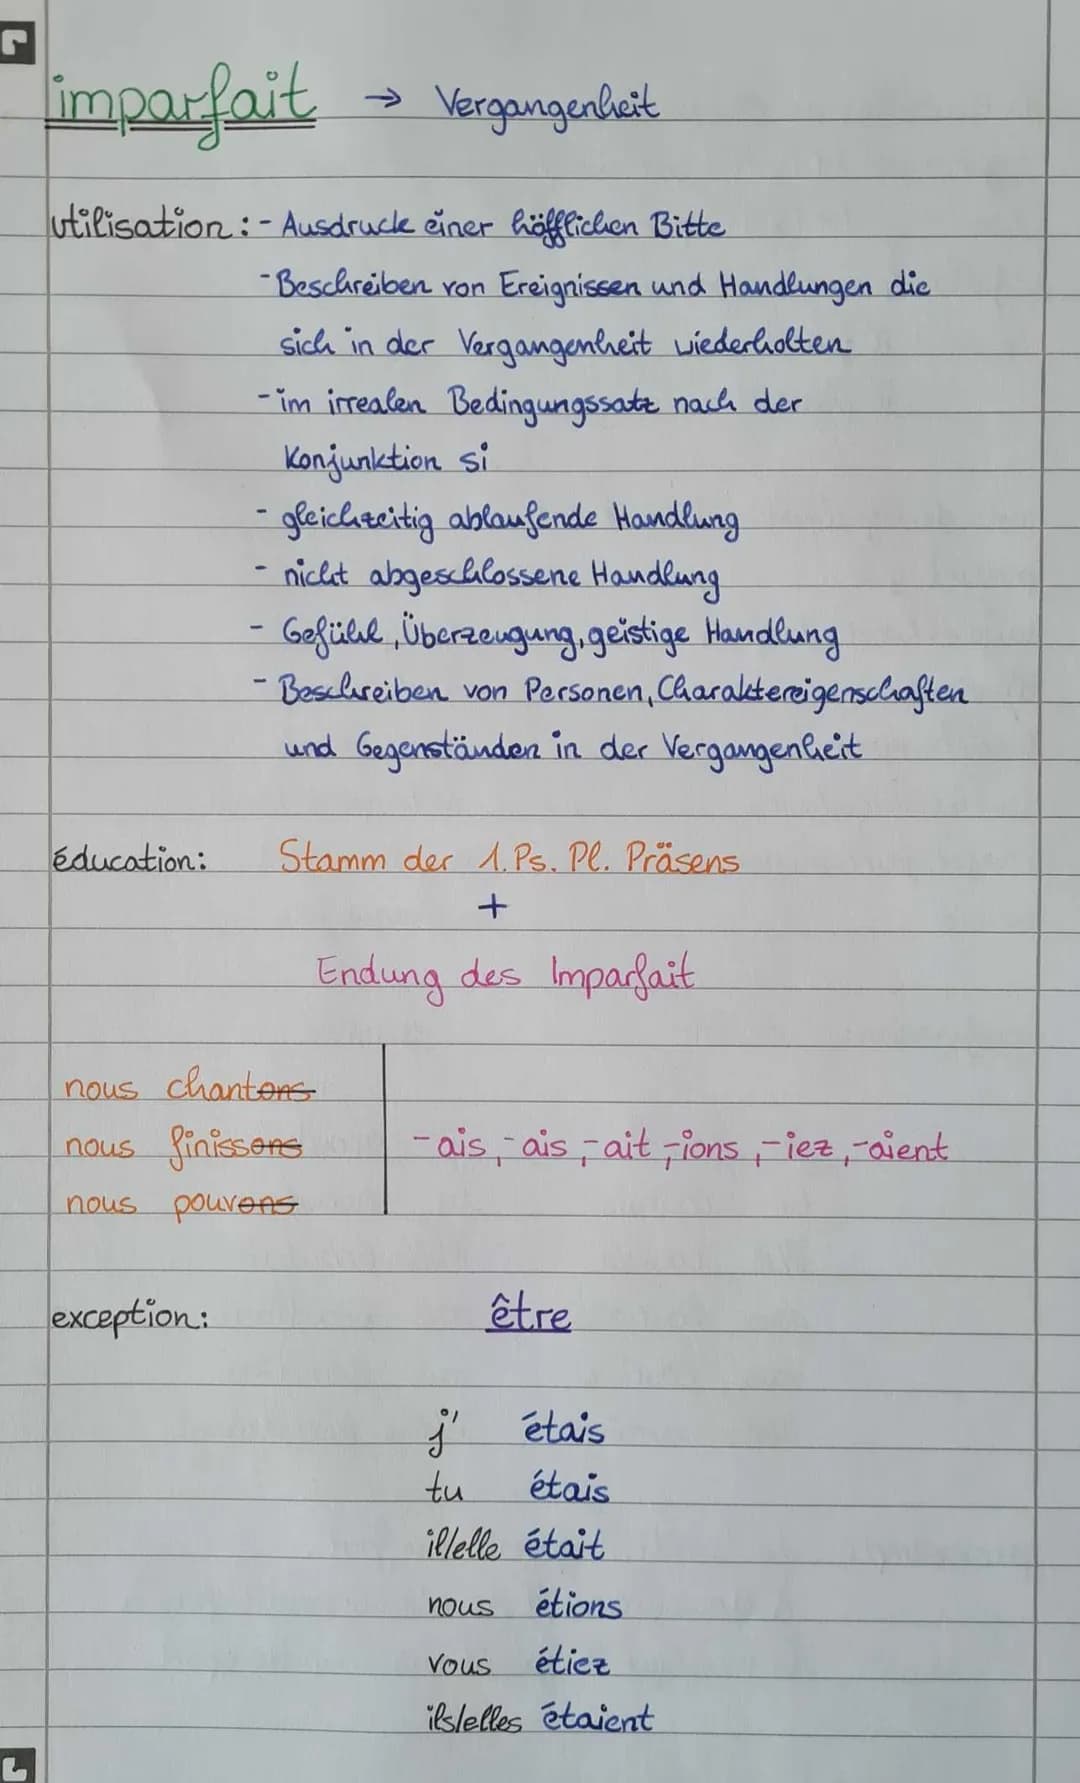 imparfait → Vergangenheit
utilisation: - Ausdruck einer höfflichen Bitte
- Beschreiben von Ereignissen und Handlungen die
sich in der Vergangenheit wiederholten
- im irrealen Bedingungssatz nach der
Konjunktion si
- gleichzeitig ablaufende Handlung
- nicht abgeschlossene Handlung
- Gefühl, Überzeugung, geistige Handlung
- Beschreiben von Personen, Charaktereigenschaften
und Gegenständen in der Vergangenheit
éducation: Stamm der 1. Ps. Pl. Präsens
+
Endung des Imparfait
nous chantons
nous finissons -ais, -ais, -ait, -ions, -iez, -aient
nous pouvons
exception: être
j' étais
tu étais
il/elle était
nous étions
vous étiez
ils/elles étaient